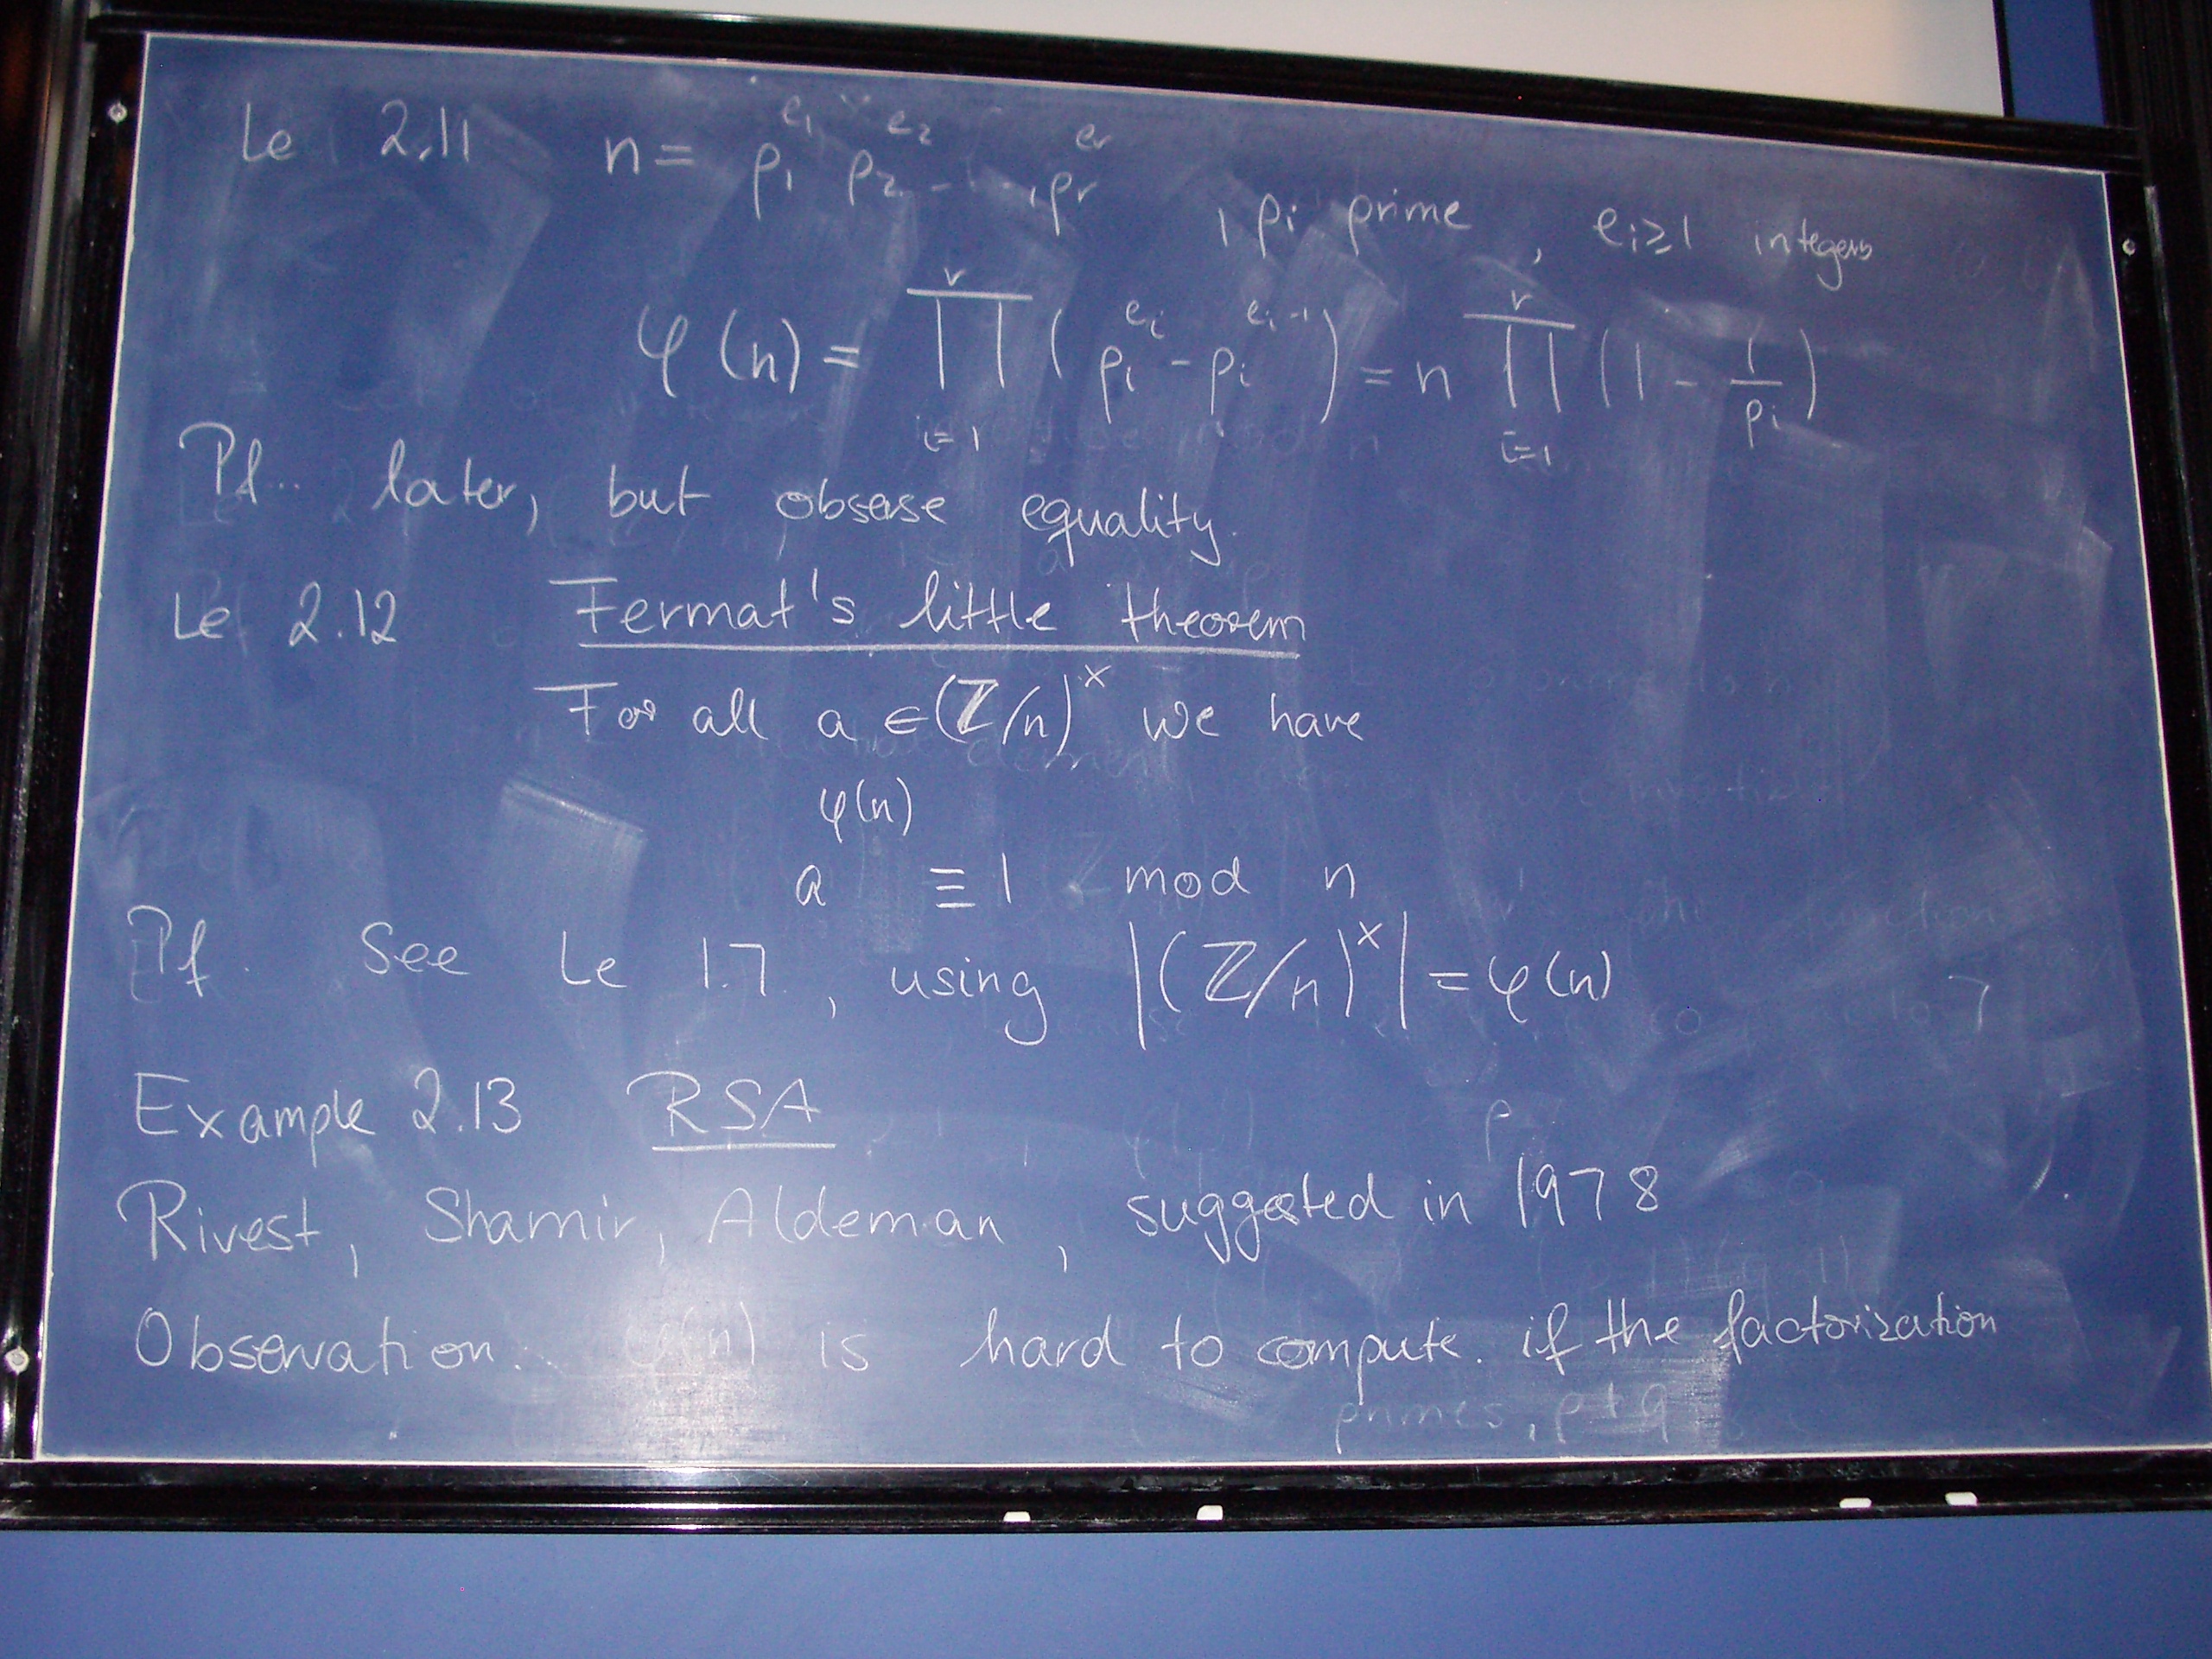 Le 2.11 n = p₁^e₁ p₂^e₂ - - , pᵣ^eᵣ , pᵢ prime , eᵢ ≥ 1 integers
φ(n) = ∏_{i=1}^{r} ( pᵢ^{eᵢ} - pᵢ^{eᵢ-1} ) = n ∏_{i=1}^{r} (1 - 1/pᵢ)
Pf. later, but obserse equality.
Le 2.12 Fermat's little theorem
For all a ∈ (ℤ/n)^× we have
a^φ(n) ≡ 1 mod n
Pf. See Le 1.7 , using |(ℤ/n)^×| = φ(n)
Example 2.13 RSA
Rivest, Shamir, Aldeman , suggested in 1978
Observation. φ(n) is hard to compute. if the factorization
primes, p + q